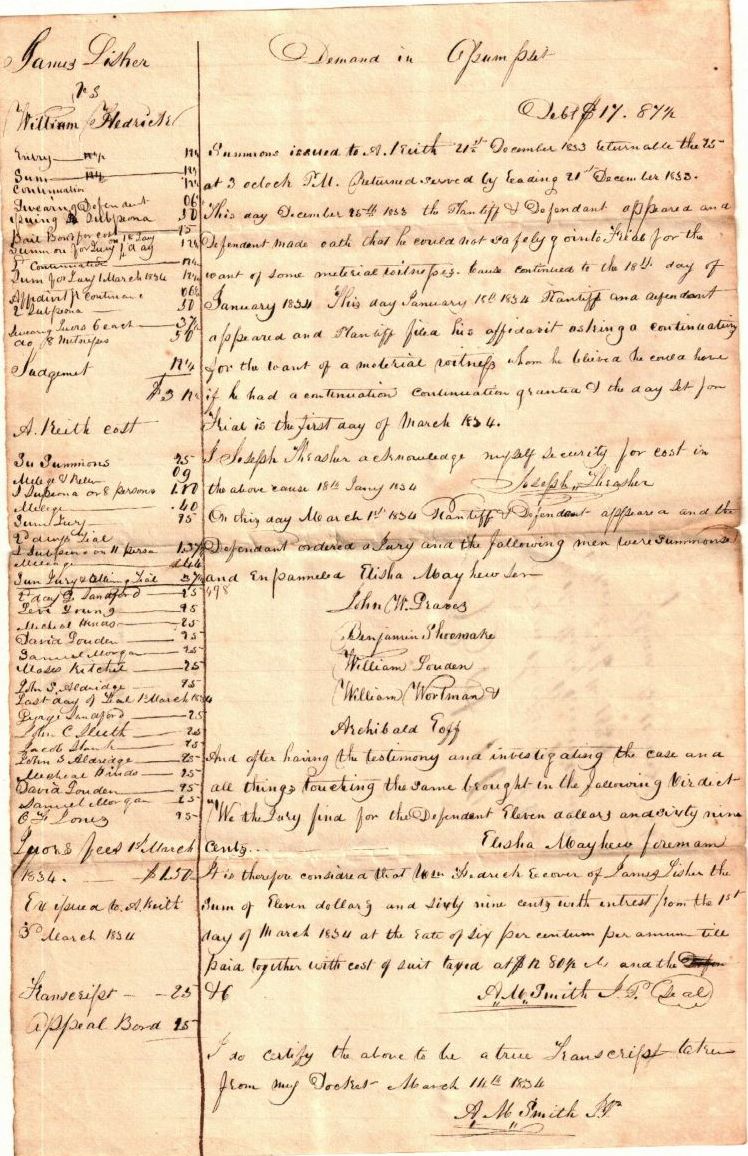 James Lisher
vs
William Hedrick
Entry 12½
Sum 12½
Continuation 12½
Swearing Defendent 06
Isuing Subpena 50
Bail Bond for cost
Summon for Jury 12½
Continuation 12½
Sum for Jury 1 March 1834 12½
Affidivt for Continuanc 06
Subpena 50
Swearing Jurors 6 each 37½
do 8 Witnesses 50
Judgemet 12½
$3 12½
A. Keith cost
In Summons 25
Mileage & Return 09
1 Subpena on 8 persons 1.00
Mileage .40
Sum Jury 25
2d days Trial
1 Subpena on 11 persons 1.37½
Mileage
Sum Jury & attending Trial 37½
2d day G. Sandford 25
Levi Young 25
Micheal Hinds 25
David Louden 25
Samuel Morgan 25
Moses Kitchel 25
John S. Aldridge 25
Last day of Trial 1st March 1834
George Sandford 25
John C Sleeth 25
Jacob Shank 25
John S Aldredge 25
Micheal Hinds 25
David Louden 25
Samuel Morgan 25
C F Jones 25
Jurors fees 1st March
1834. $1.50
Ex issued to A. Keith
3d March 1834
Transcript 25
Appeal Bond 25
Demand in Asumpset
Debt $17.87½
Summons issued to A. Keith 21st December 1833 Returnable the 25
at 3 oclock P.M. Returned served by Reading 21st December 1833.
This day December 25th 1833 the Plantiff & Defendant appeared and
Defendent made oath that he could not safely go into Trial for the
want of some meterial witnesses. Cause continued to the 18th day of
January 1834 This day January 18th 1834 Plantiff and defendant
appeared and Plantiff filed his affidavit asking a continuation
for the want of a material witness whom he blieved he could have
if he had a continuation continuation granted & the day set for
Trial is the first day of March 1834.
I Joseph Thrasher acknowledge myself security for cost in
the above cause 18th Jany 1834 Joseph Thrasher
On this day March 1st 1834 Plantiff & Defendent appeared and the
Defendant ordered a Jury and the following men were summonsed
and Enpanneled Elisha Mayhew Sen
John W. Graves
Benjamin Shoemake
William Louden
William Wortman &
Archibald Goff
And after haring the testimony and investigating the case and
all things touching the same brought in the following Virdict
"We the Jury find for the Defendent Eleven dollars and sixty nine
Cents. Elisha Mayhew foreman
It is therefore considred that Wm Hedrick Recover of James Lisher the
sum of Eleven dollars and sixty nine cents with entrest from the 1st
day of March 1834 at the Rate of six per centum per annum till
paid together with cost of suit taxed at $12 80½ and the
&c A. M. Smith J. P. (Seal)
I do certify the above to be a true Transcript taken
from my Docket March 14th 1834
A. M Smith JP